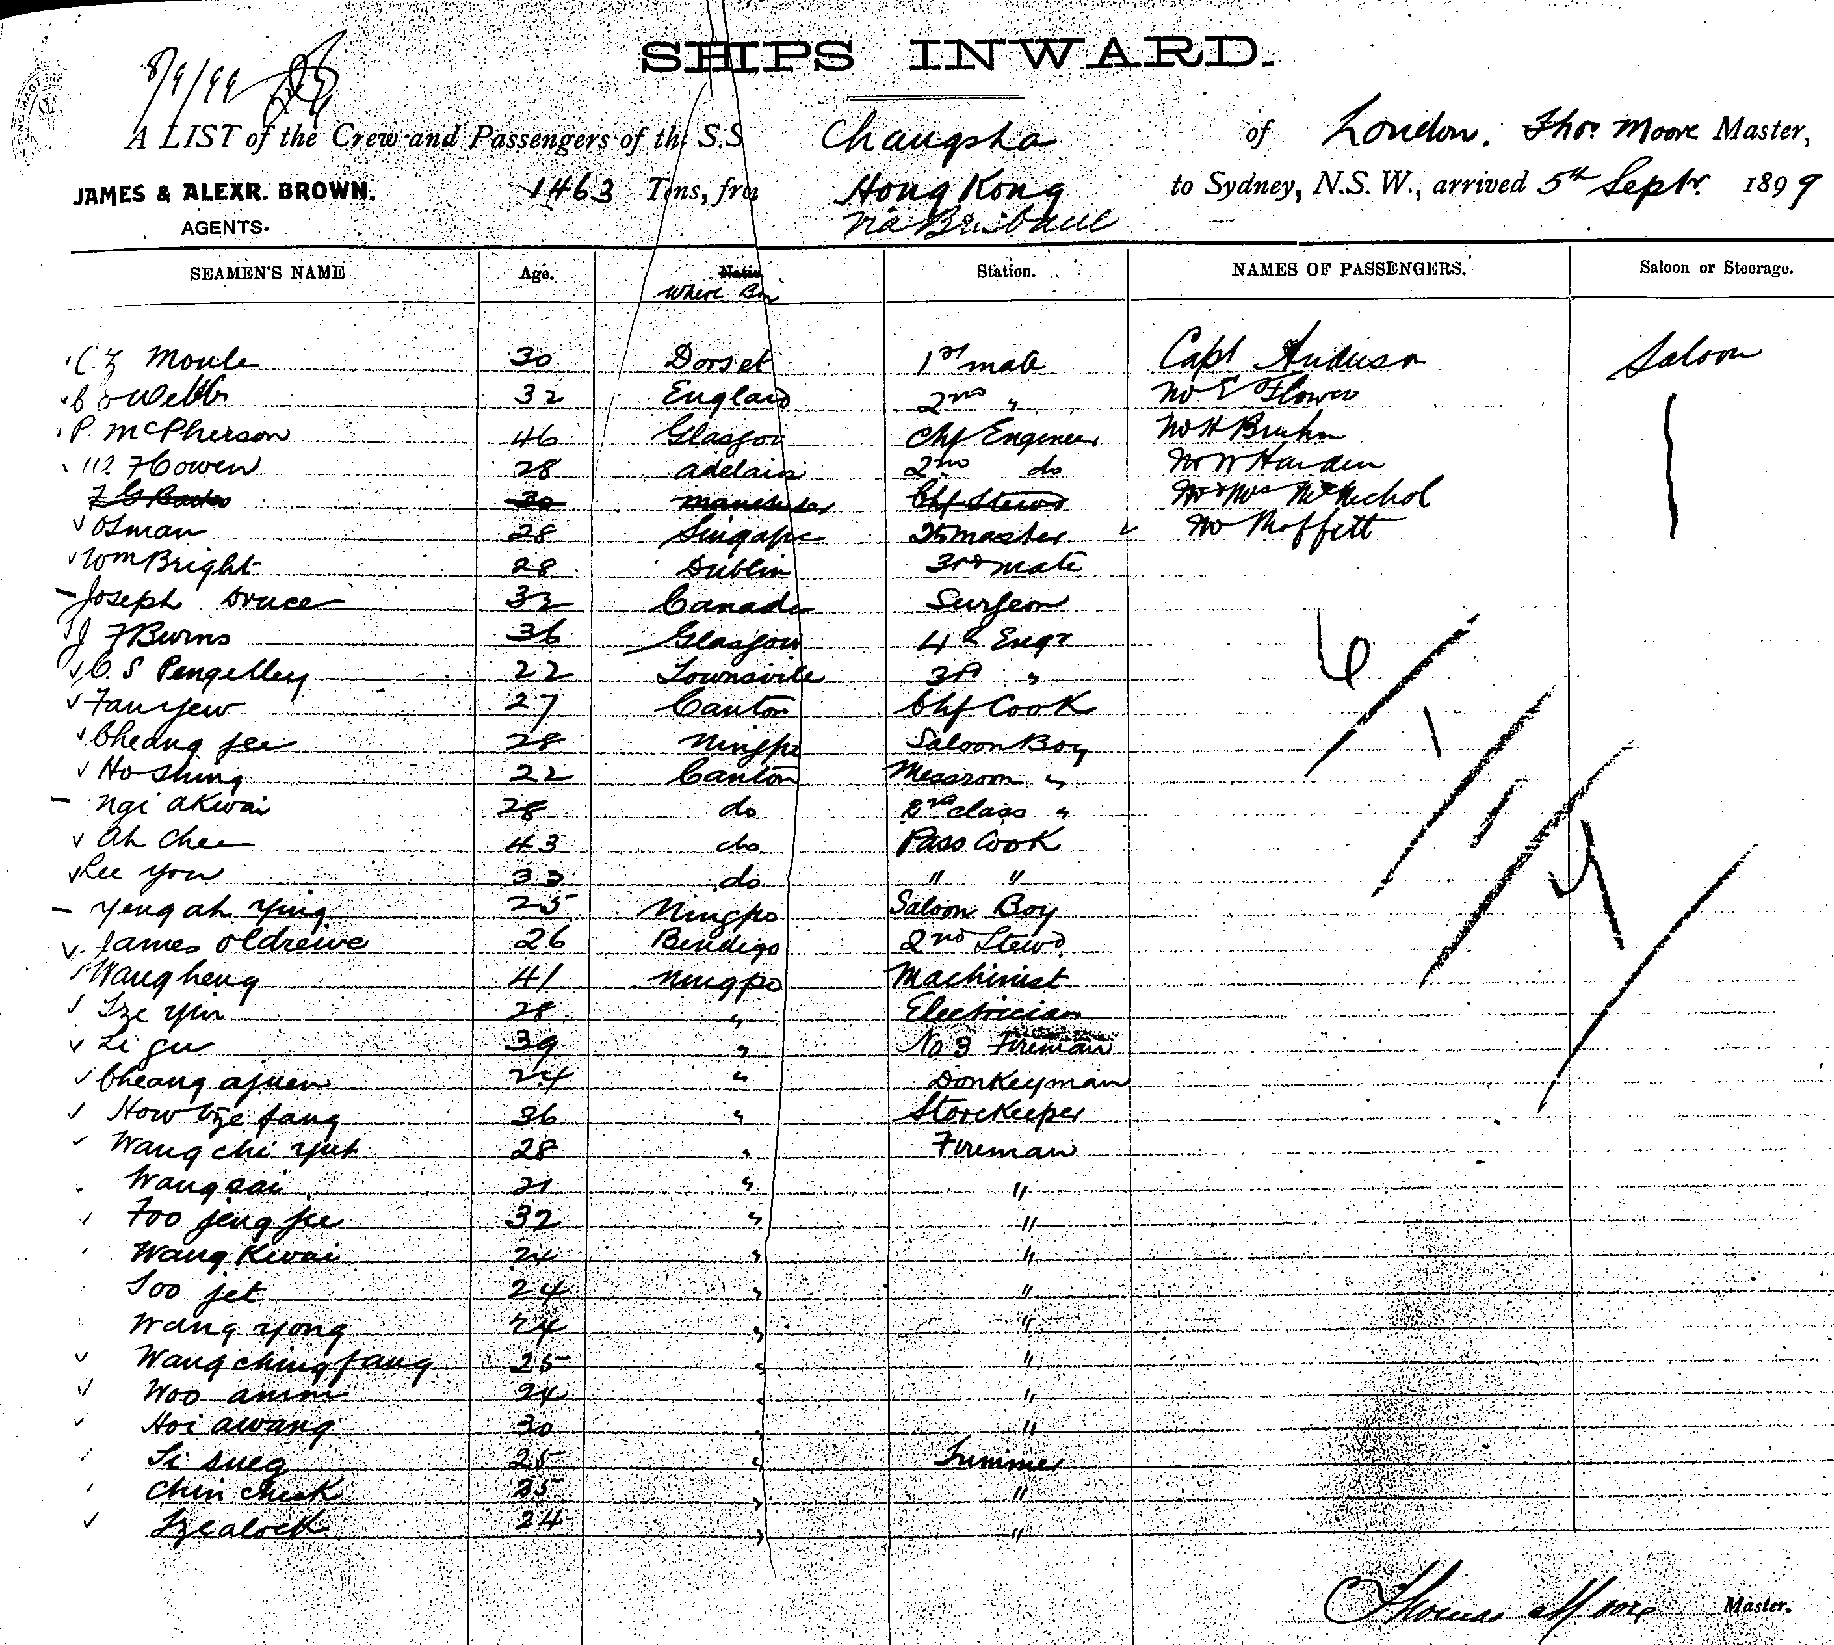 8/9/99
SHIPS INWARD.
A LIST of the Crew and Passengers of the S.S. Changsha of London. Thos Moore Master,
JAMES & ALEXR. BROWN. 1463 Tons, from Hong Kong to Sydney, N.S.W., arrived 5th Septr. 1899
AGENTS. via Brisbane
SEAMEN'S NAME Age. Station. NAMES OF PASSENGERS. Saloon or Steerage.
Where
Moule 30 Dorset 1st mate Capt Saloon
Webb 32 England 2nd " E Flower
P. McPherson 46 Glasgow Chf Engineer Mr H Bruhn
Cowen 28 Adelaid 2nd do Mr W Harden
30 Chf Stewd Mr & Mrs McNichol
Osman 28 Singapre master Mr Moffett
Wm Bright 28 Dublin 3rd mate
Joseph Druce 32 Canada Surgeon
J F Burns 36 Glasgow 4th Engr 6
C. S Pengelley 22 Townsville 3rd "
Fan yew 27 Canton Chf Cook 1
Cheang jee 28 Ningpo Saloon Boy
Ho Shing 22 Canton Messroom "
Ngi akwai 28 do 2nd class "
Ah Chee 43 do Pass Cook
Lee you 33 do " "
Yeng ah Ying 25 Ningpo Saloon Boy
James Oldreive 26 Bendigo 2nd Stewd
Wang heng 41 Ningpo Machinist
Sze Yin 28 " Electrician
Li gu 39 " No 3 Fireman
Cheang ajuen 24 " Donkeyman
How tze fang 36 " Storekeeper
Wang chi yut 28 " Fireman
Wang sai 21 " "
Foo jeng jee 32 " "
Wang Kwai 24 " "
Soo jet 24 " "
Wang yong 24 " "
Wang ching fang 25 " "
Woo 24 " "
Hoi awang 30 " "
Li sueg 25 " Trimmer
Chin cheek 25 " "
Sze alock 24 " "
Thomas Moore Master.